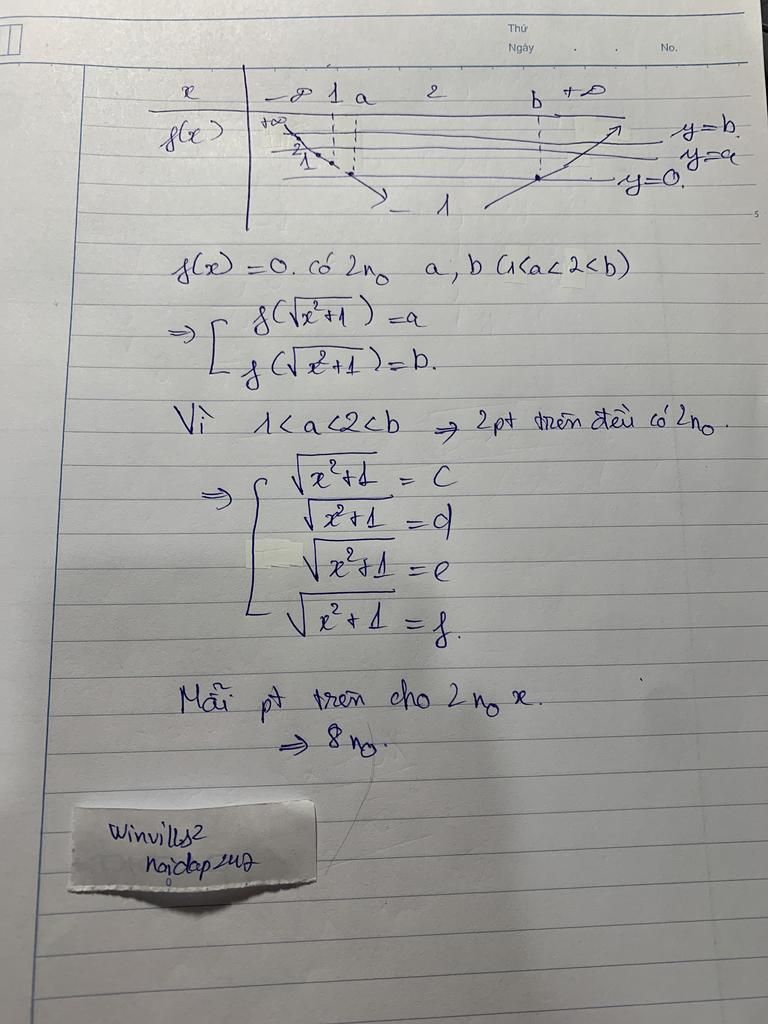 Thứ
Ngày . . No.
x -∞ 1 a 2 b +∞
f(x) +∞ 2 1 - 1 y=b.
y=a
y=0.
5
f(x) = 0. có 2n₀ a, b (1<a<2<b)
⇒ [ f(√x²+1) = a
f(√x²+1) = b.
Vì 1<a<2<b ⇒ 2pt trên đều có 2n₀.
⇒ [ √x²+1 = c
√x²+1 = d
√x²+1 = e
√x²+1 = f.
Mỗi pt trên cho 2n₀ x.
⇒ 8n₀.